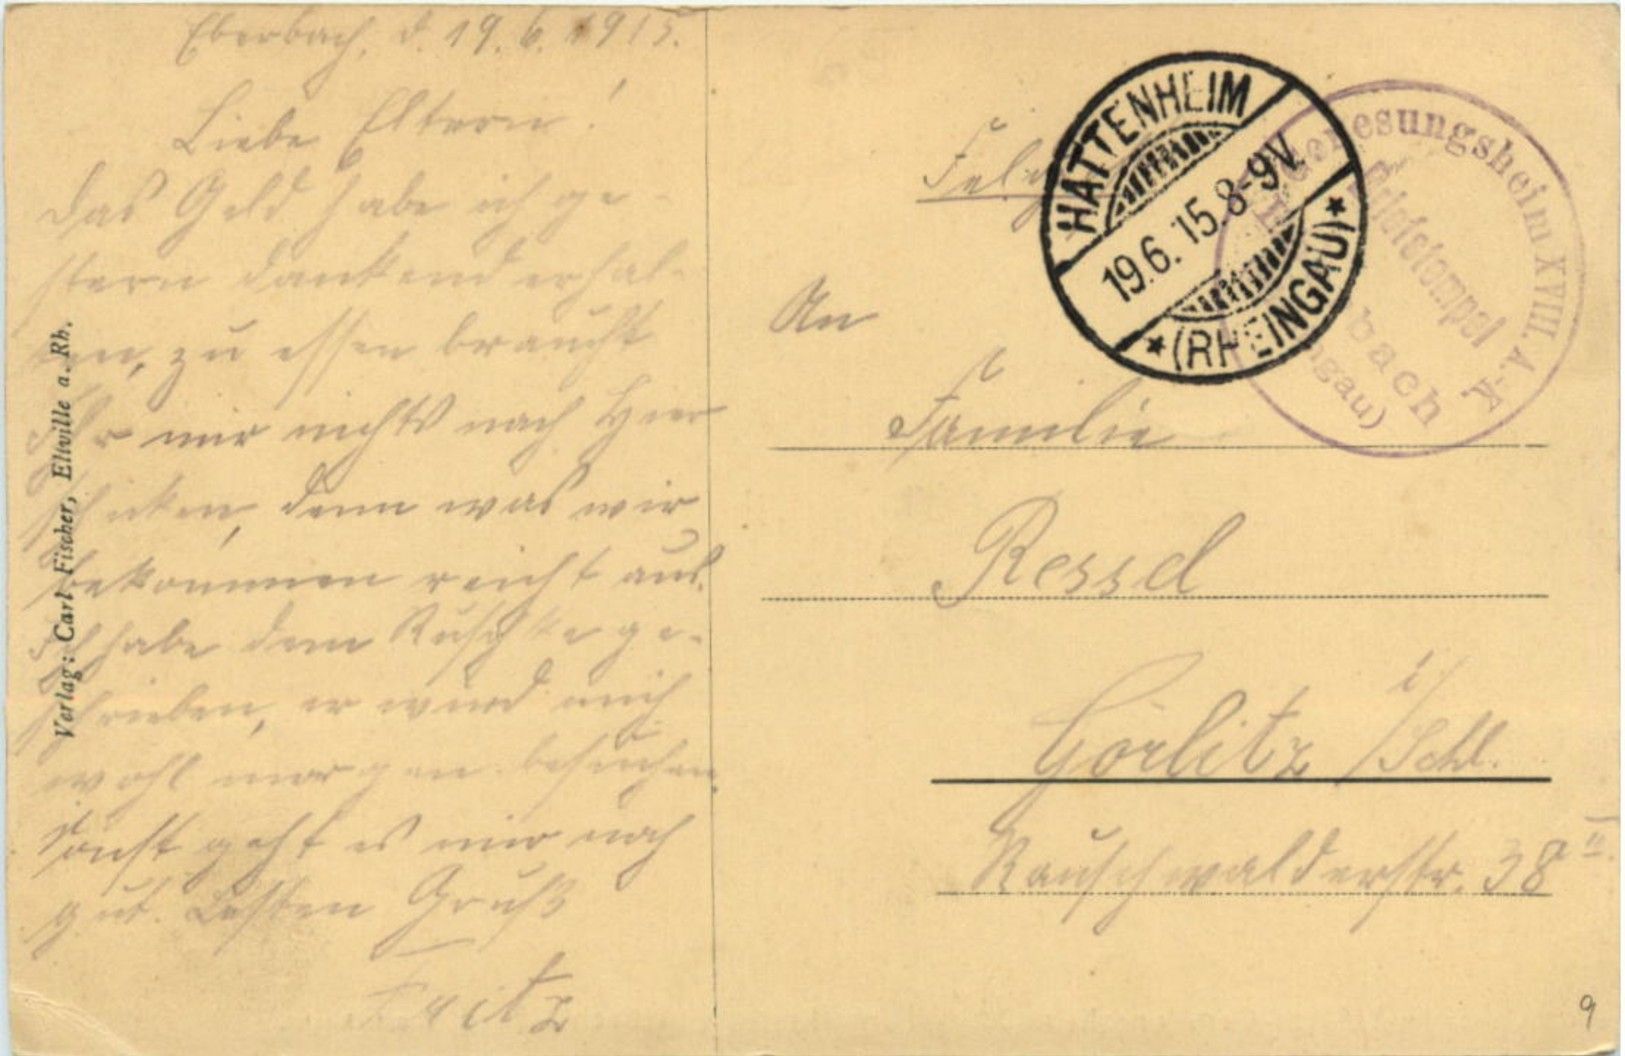 Eberbach, d. 19.6.1915.
Liebe Eltern!
das Geld habe ich ge-
stern dankend erhal-
ten, zu essen braucht
Ihr mir nichts nach hier
schicken, denn was wir
bekommen reicht aus.
Ich habe dem Ruschke ge-
schrieben, er wird mich
wohl morgen besuchen,
sonst geht es mir noch
gut. Besten Gruß
Fritz
Verlag: Carl Fischer, Eltville a. Rh.
HATTENHEIM
19.6.15.8-9V.
* (RHEINGAU) *
Genesungsheim XVIII. A.-K.
Briefstempel
bach
ngau)
An
Familie
Ressel
Görlitz i/Schl.
Rauschwalderstr. 38 II.
9